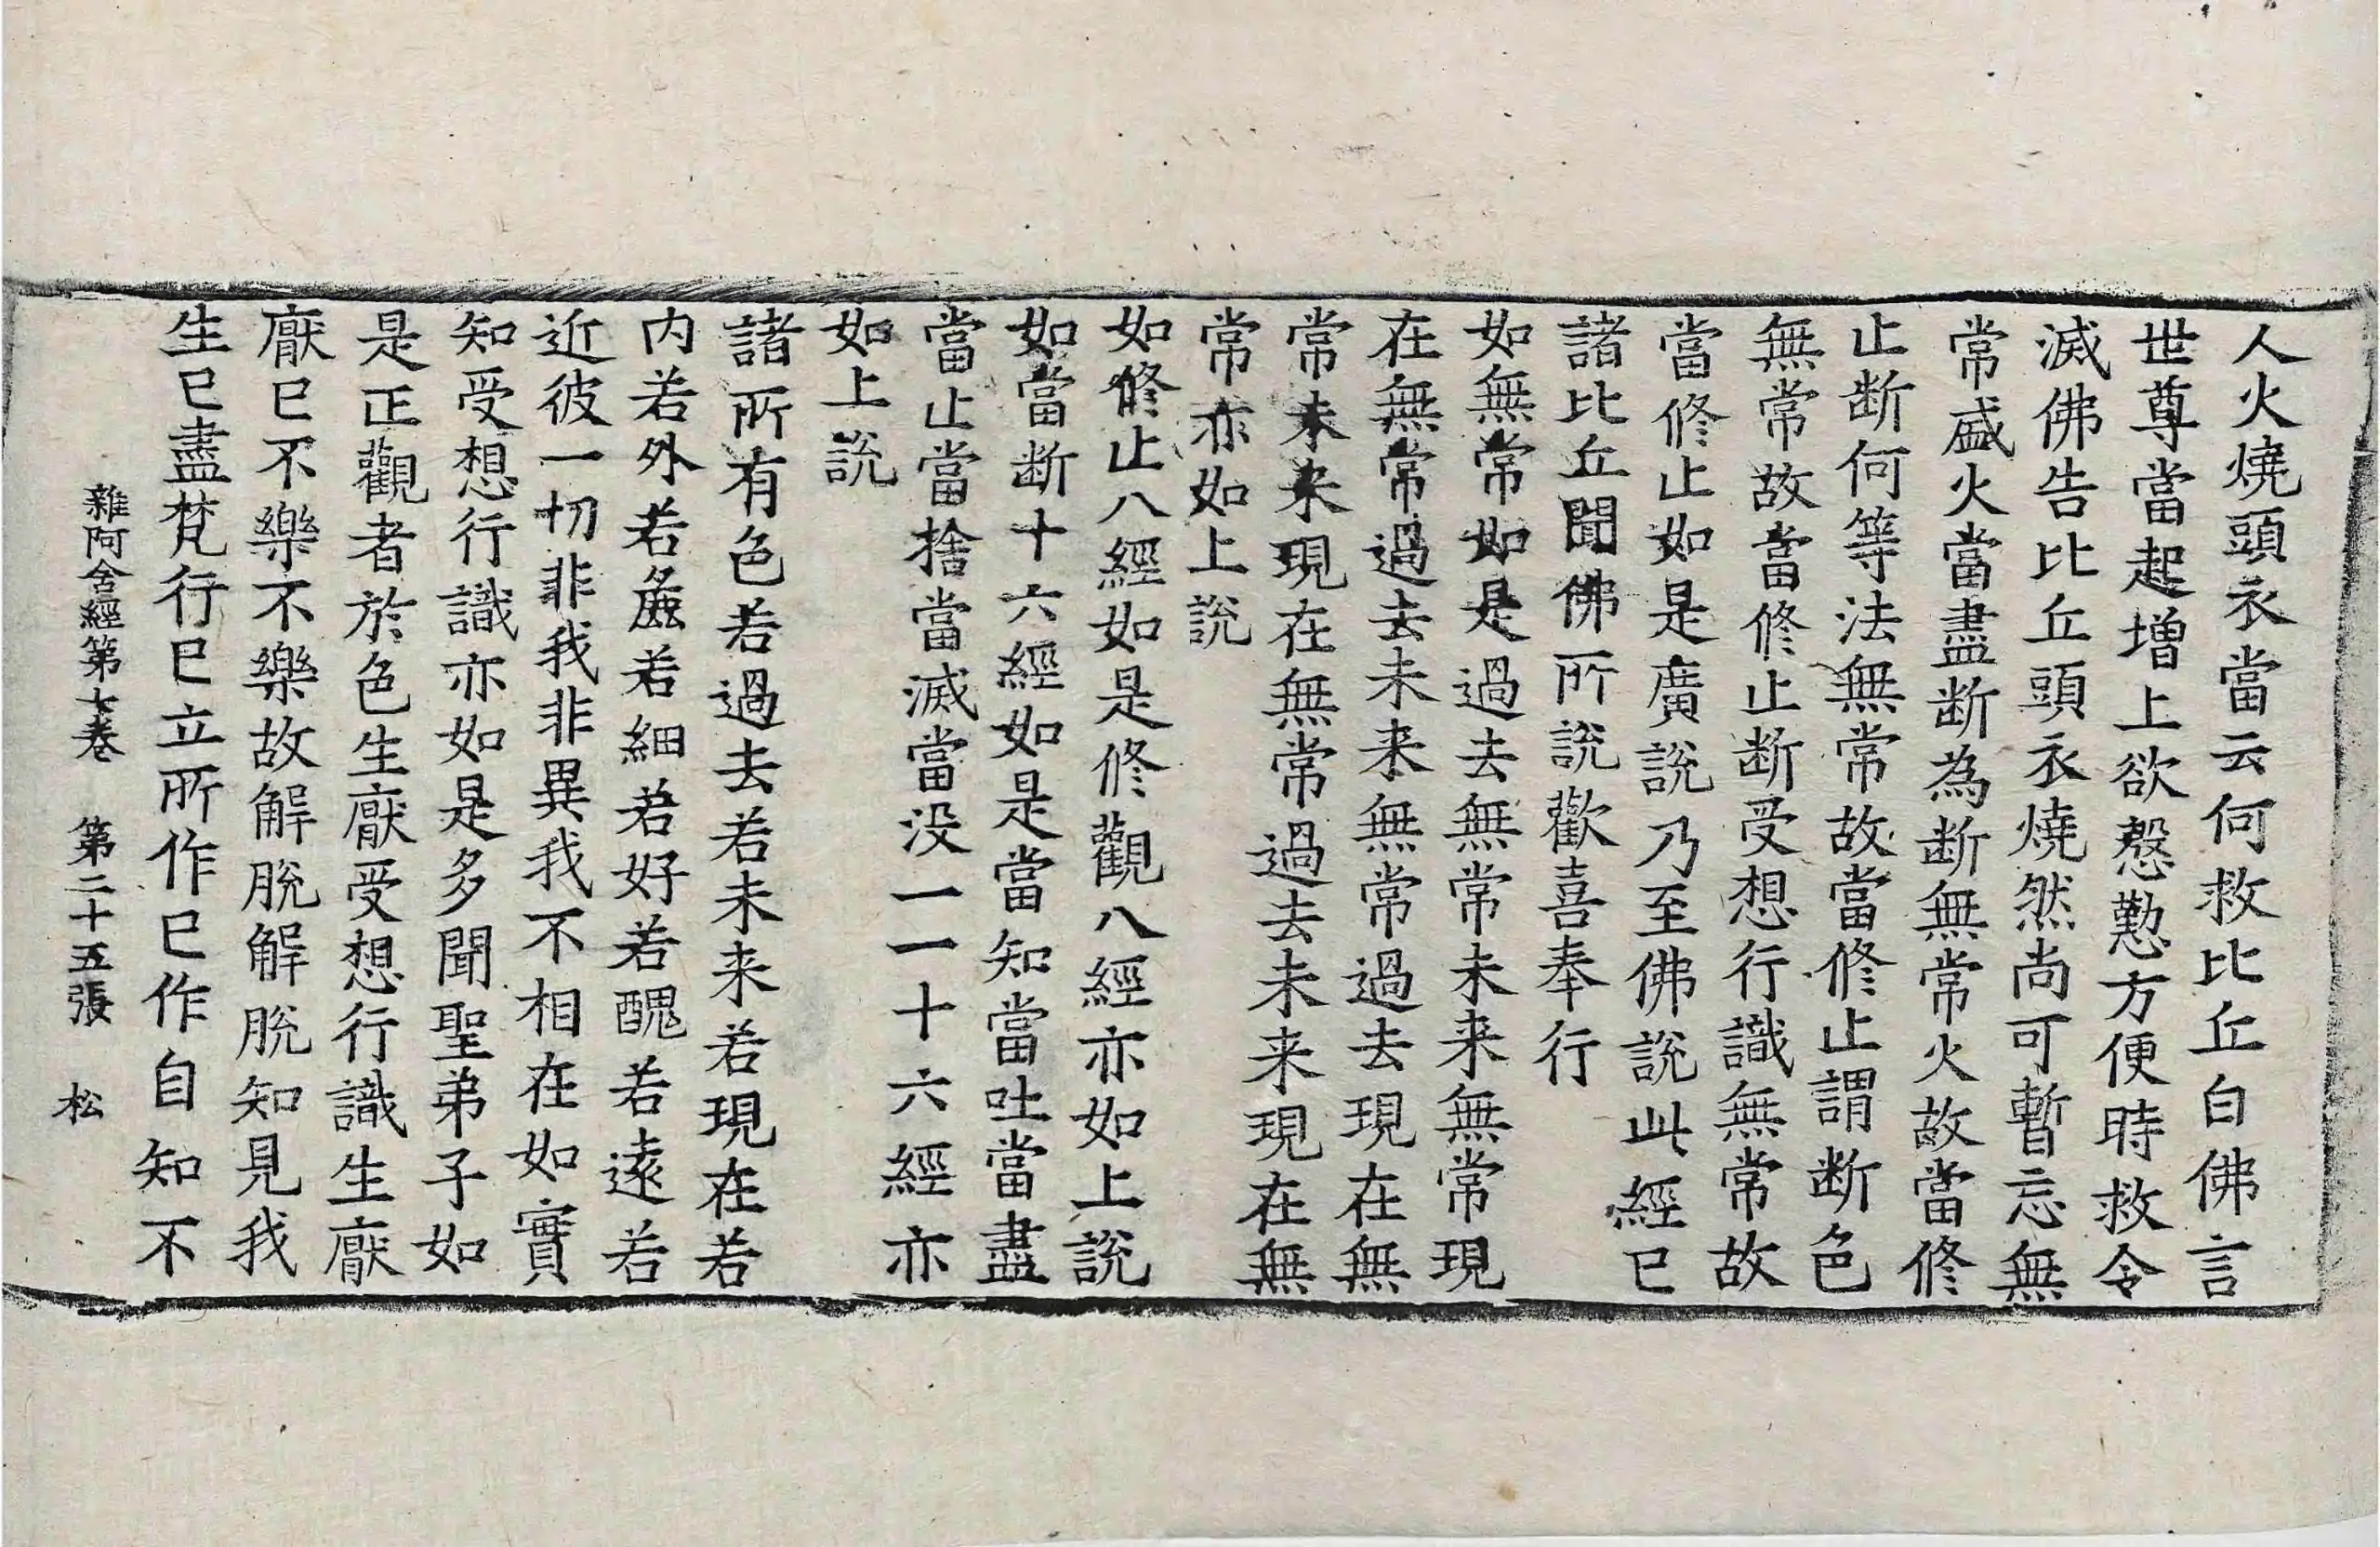 人火燒頭衣當云何救比丘白佛言
世尊當起增上欲慇懃方便時救令
滅佛告比丘頭衣燒然尚可暫忘無
常盛火當盡断為断無常火故當修
止断何等法無常故當修止謂断色
無常故當修止断受想行識無常故
當修止如是廣說乃至佛說此經已
諸比丘聞佛所說歡喜奉行
如無常如是過去無常未来無常現
在無常過去未来無常過去現在無
常未来現在無常過去未来現在無
常亦如上說
如修止八經如是修觀八經亦如上說
如當断十六經如是當知當吐當盡
當止當捨當滅當没一一十六經亦
如上說
諸所有色若過去若未来若現在若
内若外若麁若細若好若醜若遠若
近彼一切非我非異我不相在如實
知受想行識亦如是多聞聖弟子如
是正觀者於色生厭受想行識生厭
厭已不樂不樂故解脫解脫知見我
生已盡梵行已立所作已作自知不
雜阿含經第七卷　第二十五張　松